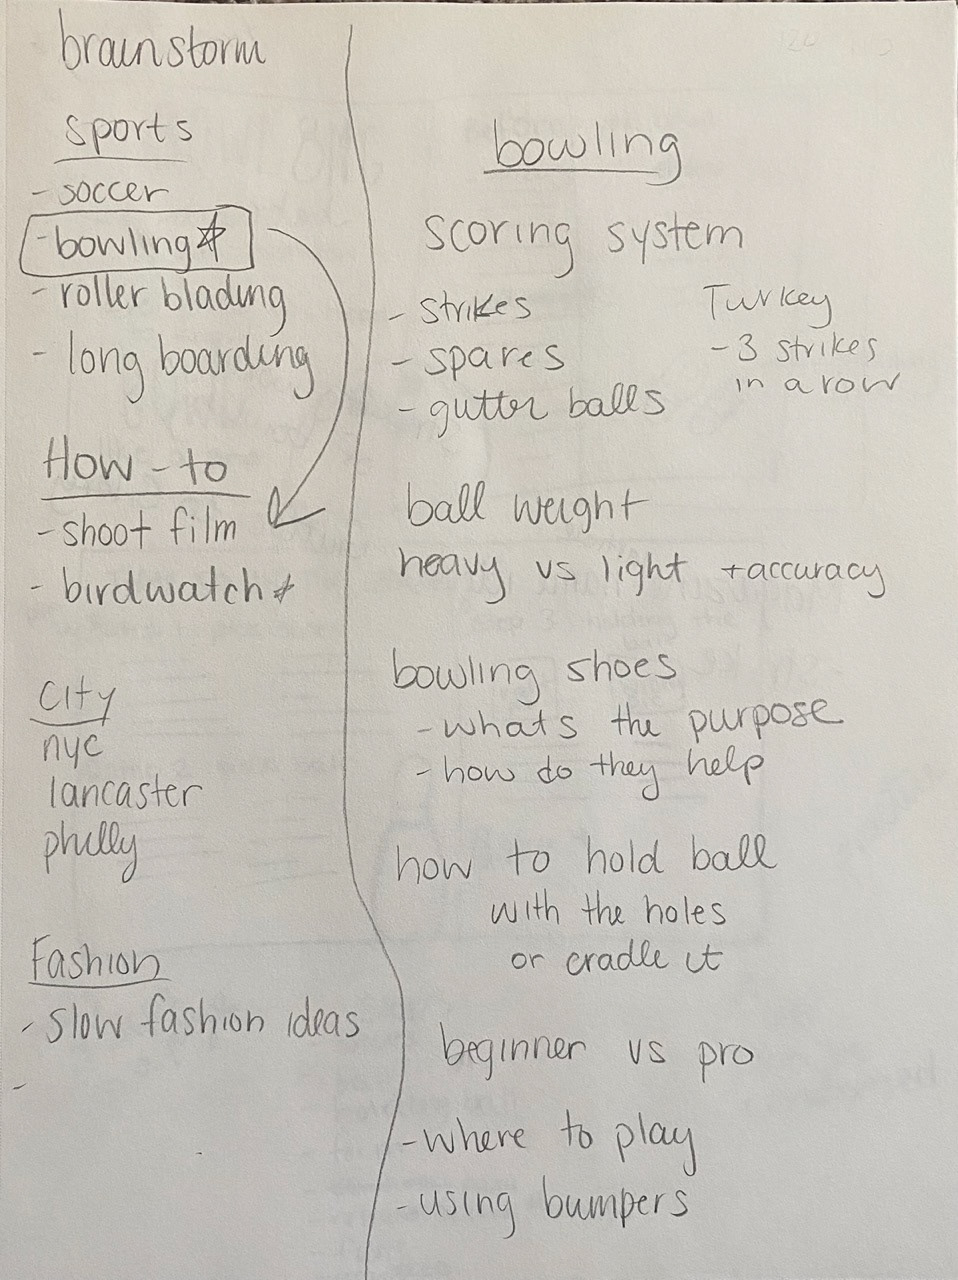 brainstorm
sports
- soccer
- bowling
- roller blading
- long boarding
How-to
- shoot film
- birdwatch
City
nyc
lancaster
philly
Fashion
- slow fashion ideas
-
bowling
scoring system
- strikes
- spares
- gutter balls
Turkey
- 3 strikes
in a row
ball weight
heavy vs light + accuracy
bowling shoes
- whats the purpose
- how do they help
how to hold ball
with the holes
or cradle it
beginner vs pro
- where to play
- using bumpers